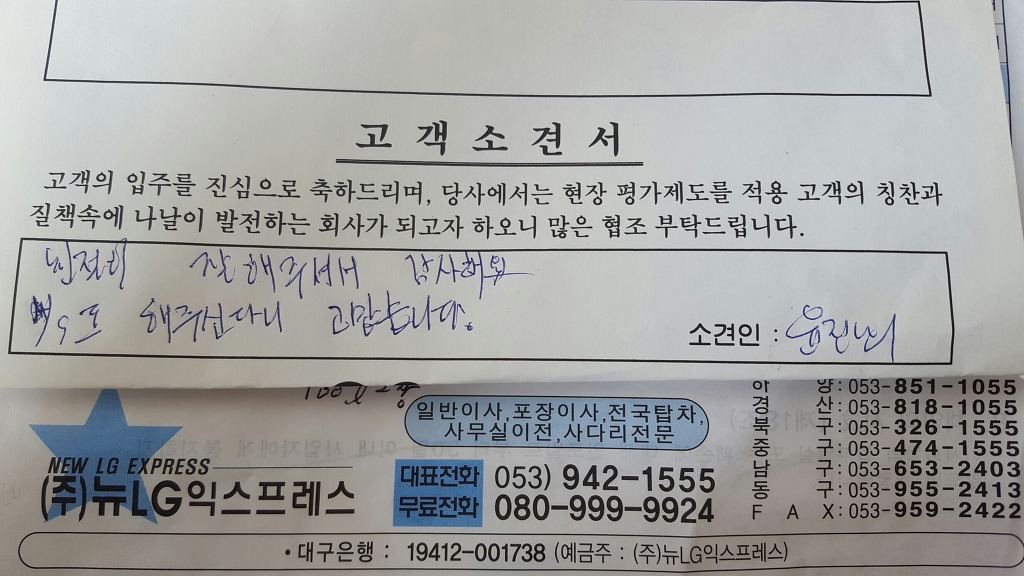 고객소견서
고객의 입주를 진심으로 축하드리며, 당사에서는 현장 평가제도를 적용 고객의 칭찬과
질책속에 나날이 발전하는 회사가 되고자 하오니 많은 협조 부탁드립니다.
잘해주셔서 감사해요
해주신다니 고맙습니다.
소견인 :
일반이사,포장이사,전국탑차,
사무실이전,사다리전문
NEW LG EXPRESS
(주)뉴LG익스프레스
대표전화 053) 942-1555
무료전화 080-999-9924
안 양:053-851-1055
경 산:053-818-1055
북 구:053-326-1555
중 구:053-474-1555
남 구:053-653-2403
동 구:053-955-2413
F A X:053-959-2422
• 대구은행 : 19412-001738 (예금주 : (주)뉴LG익스프레스)